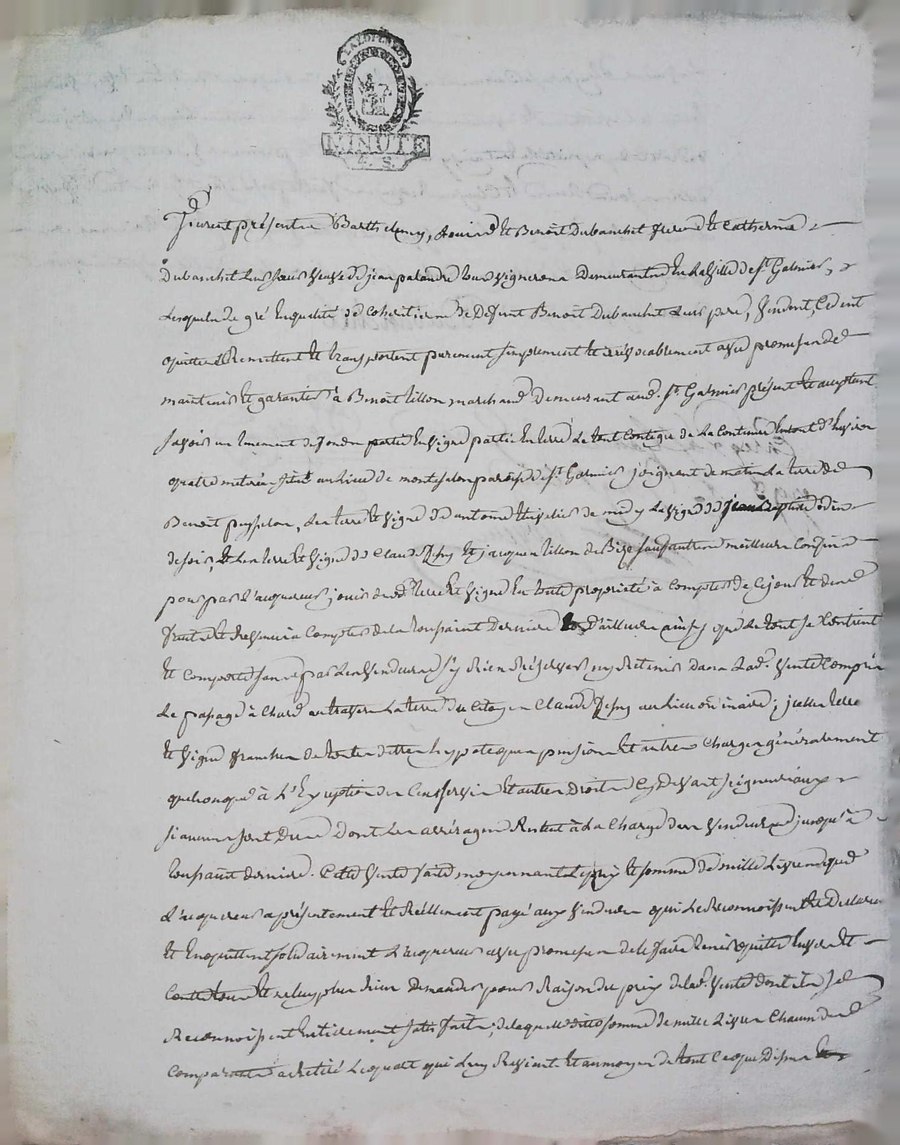 LA LOI LE ROI
MINUTE
4. S.
furent présentes Barthelemy, et Benoît Dubanchet freres et Catherine
Dubanchet leur sœur veuve de jean palandre tous vignerons Demeurantes En la ville de st. Galmier,
Lesquels de gré En qualité de Coheritiers de Defunt Benoît Dubanchet Leur pere, Vendent, Cedent
quittent Remettent et transportent purement simplement et irrévocablement avec promesse de
maintenir et garantir à Benoît tillon marchand Demeurant aud. st. Galmier présent et acceptant
savoir un tenement de fonds partie En vigne partie En terre Le tout Contigu de La Contenue Environ
quatre meterées situé au Lieu de paroisse de st. Galmier joignant de matin La terre de
Benoît La terre et vigne d'antoine de midy La vigne de jean Baptiste
de soir, et Les terre et vigne de Claude et jacques tillon de Bize sauf autres meilleurs Confins
pour par L'acquereur jouir desd. terre et vigne En toute propriété à Compter de Ce jour et des
fruits et Revenus à Compter de la toussaint Derniere D'ailleurs ainsy que Le tout Se Contient
et Comporte sans par Les Vendeurs s'y Rien Réserver ny Retenir dans Lad. Vente Compris
Le passage à Chard au travers La terre du Citoyen Claude au Lieu ; jcelles terre
et Vigne franches de toutes dettes hypoteques pensions et autres Charges généralement
quelconques à L'Exception des Cens servis Et autres Droits Cy devant seigneuriaux
si aucuns sont dus Dont Les arrérages Restent à La Charge des Vendeurs jusqu'à
toussaint derniere. Cette Vente faite moyennant Le prix et somme de mille Livres que
L'acquereur a présentement et Réellement payé aux Vendeurs qui Le Reconnoissent
et En quittent solidairement L'acquereur avec promesse de le faire tenir quitte Envers et
Contre tous et ne luy plus Rien Demander pour Raison du prix de lad. Vente dont ils se
Reconnoissent Entierement satisfaits ; de laquelle ditte somme de mille Livres Chacun des
Comparants a Retiré La quote qui Luy Revient. Et au moyen de tout Ce que Dessus